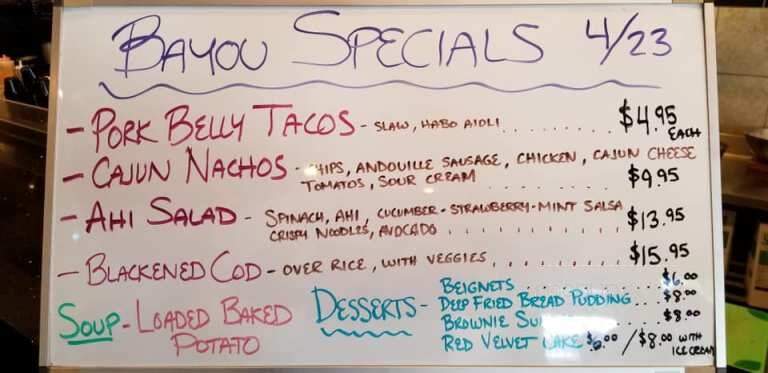 BAYOU SPECIALS 4/23
- PORK BELLY TACOS - SLAW, HABO AIOLI ........ $4.95 EACH
- CAJUN NACHOS - CHIPS, ANDOUILLE SAUSAGE, CHICKEN, CAJUN CHEESE
TOMATOS, SOUR CREAM ........ $9.95
- AHI SALAD - SPINACH, AHI, CUCUMBER-STRAWBERRY-MINT SALSA
CRISPY NOODLES, AVOCADO ........ $13.95
- BLACKENED COD - OVER RICE, WITH VEGGIES ........ $15.95
SOUP - LOADED BAKED
POTATO
DESSERTS - BEIGNETS ... $6.00
DEEP FRIED BREAD PUDDING ... $8.00
BROWNIE ... $8.00
RED VELVET CAKE $6.00 / $8.00 WITH
ICE CREAM